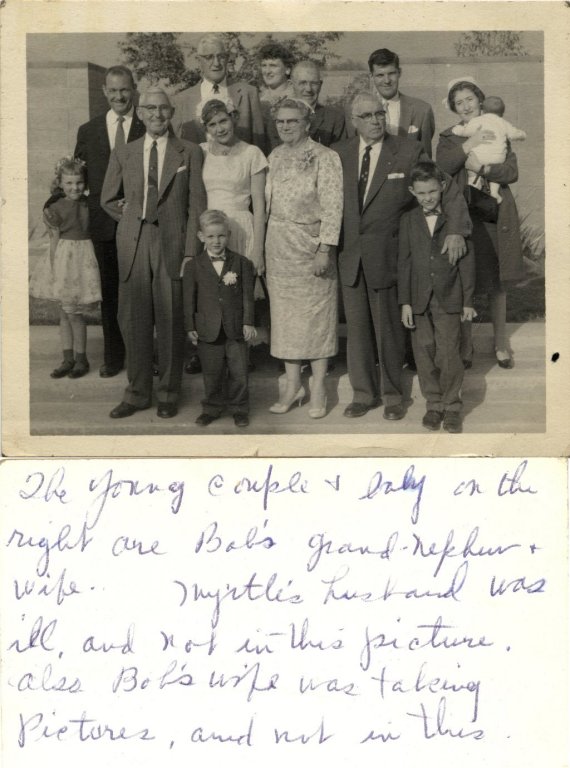 The young couple & baby on the
right are Bob's grand-nephew +
wife. Myrtle's husband was
ill, and not in this picture.
also Bob's wife was taking
Pictures, and not in this.